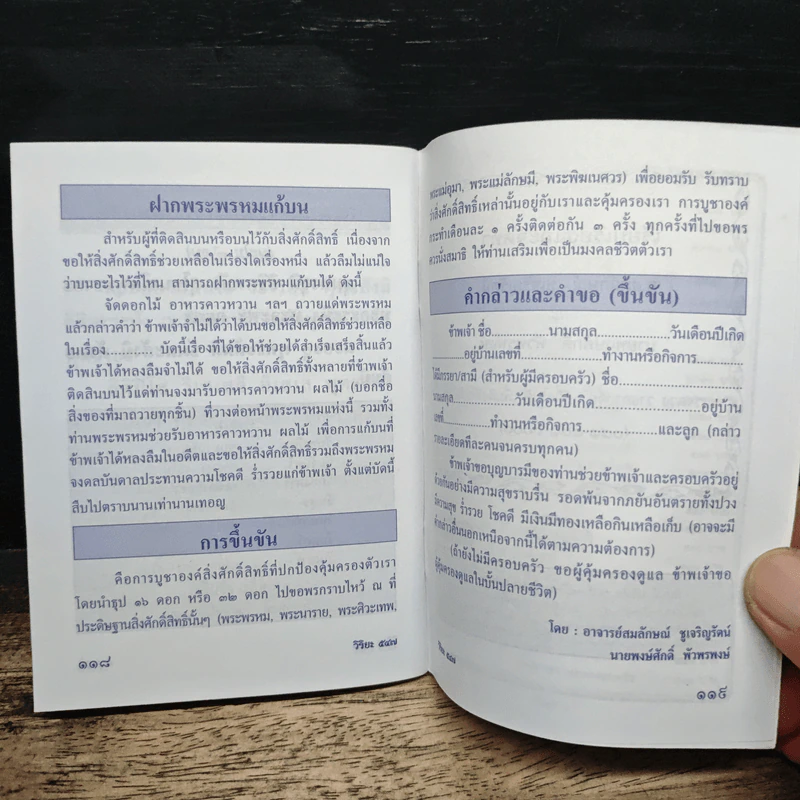 ฝากพระพรหมแก้บน
สำหรับผู้ที่ติดสินบนหรือบนไว้กับสิ่งศักดิ์สิทธิ์ เนื่องจาก
ขอให้สิ่งศักดิ์สิทธิ์ช่วยเหลือในเรื่องใดเรื่องหนึ่ง แล้วลืมไม่แน่ใจ
ว่าบนอะไรไว้ที่ไหน สามารถฝากพระพรหมแก้บนได้ ดังนี้
จัดดอกไม้ อาหารคาวหวาน ฯลฯ ถวายแด่พระพรหม
แล้วกล่าวคำว่า ข้าพเจ้าจำไม่ได้ว่าได้บนขอให้สิ่งศักดิ์สิทธิ์ช่วยเหลือ
ในเรื่อง............ บัดนี้เรื่องที่ได้ขอให้ช่วยได้สำเร็จเสร็จสิ้นแล้ว
ข้าพเจ้าได้หลงลืมจำไม่ได้ ขอให้สิ่งศักดิ์สิทธิ์ทั้งหลายที่ข้าพเจ้า
ติดสินบนไว้แด่ท่านจงมารับอาหารคาวหวาน ผลไม้ (บอกชื่อ
สิ่งของที่มาถวายทุกชิ้น) ที่วางต่อหน้าพระพรหมแห่งนี้ รวมทั้ง
ท่านพระพรหมช่วยรับอาหารคาวหวาน ผลไม้ เพื่อการแก้บนที่
ข้าพเจ้าได้หลงลืมในอดีตและขอให้สิ่งศักดิ์สิทธิ์รวมถึงพระพรหม
จงดลบันดาลประทานความโชคดี ร่ำรวยแก่ข้าพเจ้า ตั้งแต่บัดนี้
สืบไปตราบนานเท่านานเทอญ
การขึ้นขัน
คือการบูชาองค์สิ่งศักดิ์สิทธิ์ที่ปกป้องคุ้มครองตัวเรา
โดยนำธูป ๑๖ ดอก หรือ ๓๒ ดอก ไปขอพรกราบไหว้ ณ ที่
ประดิษฐานสิ่งศักดิ์สิทธิ์นั้นๆ (พระพรหม, พระนาราย, พระศิวะเทพ,
วิริยะ ๕๔๗
๑๑๘
พระแม่อุมา, พระแม่ลักษมี, พระพิฆเนศวร) เพื่อยอมรับ รับทราบ
ว่าสิ่งศักดิ์สิทธิ์เหล่านั้นอยู่กับเราและคุ้มครองเรา การบูชาองค์
กระทำเดือนละ ๑ ครั้งติดต่อกัน ๓ ครั้ง ทุกครั้งที่ไปขอพร
ควรนั่งสมาธิ ให้ท่านเสริมเพื่อเป็นมงคลชีวิตตัวเรา
คำกล่าวและคำขอ (ขึ้นขัน)
ข้าพเจ้า ชื่อ..................นามสกุล.....................วันเดือนปีเกิด
..................อยู่บ้านเลขที่.....................ทำงานหรือกิจการ............
ได้มีภรรยา/สามี (สำหรับผู้มีครอบครัว) ชื่อ...............................
นามสกุล................วันเดือนปีเกิด............................อยู่บ้าน
เลขที่................ทำงานหรือกิจการ....................และลูก (กล่าว
รายละเอียดทีละคนจนครบทุกคน)
ข้าพเจ้าขอบุญบารมีของท่านช่วยข้าพเจ้าและครอบครัวอยู่
ด้วยกันอย่างมีความสุขราบรื่น รอดพ้นจากภยันอันตรายทั้งปวง
มีความสุข ร่ำรวย โชคดี มีเงินมีทองเหลือกินเหลือเก็บ (อาจจะมี
คำกล่าวอื่นนอกเหนือจากนี้ได้ตามความต้องการ)
(ถ้ายังไม่มีครอบครัว ขอผู้คุ้มครองดูแล ข้าพเจ้าขอ
ผู้คุ้มครองดูแลในบั้นปลายชีวิต)
โดย : อาจารย์สมลักษณ์ ชูเจริญรัตน์
นายพงษ์ศักดิ์ พัวพรพงษ์
วิริยะ ๕๔๗
๑๑๙